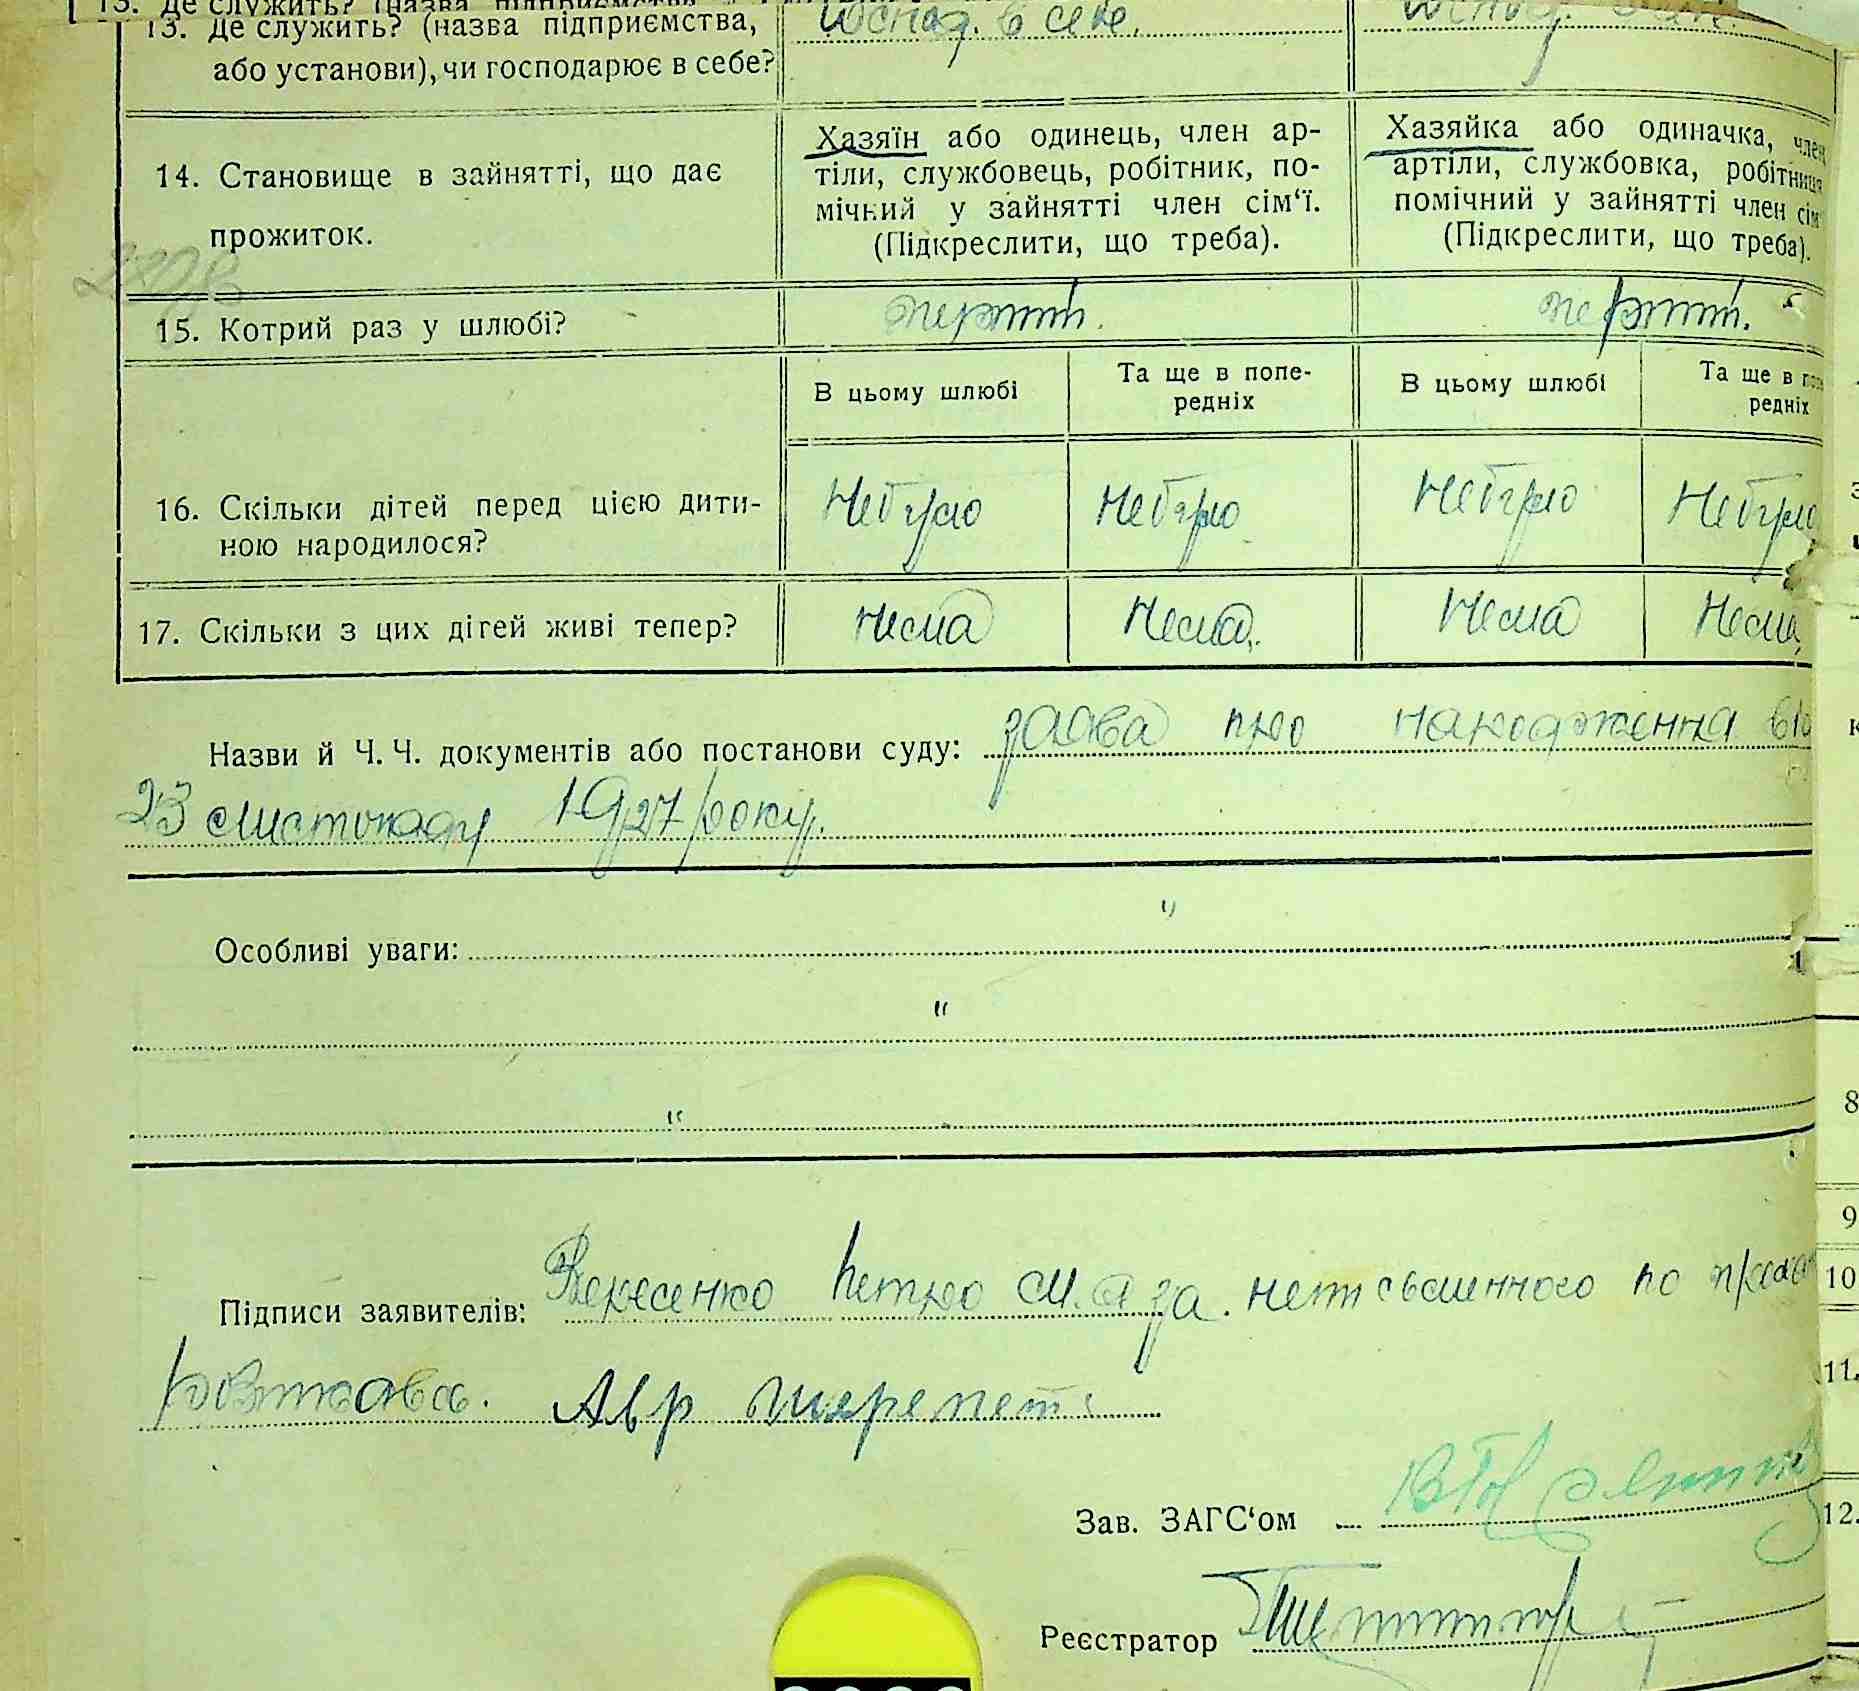 13. Де служить? (назва підприємства, Господ. в себе.
або установи), чи господарює в себе?
14. Становище в зайнятті, що дає прожиток.
Хазяїн або одинець, член ар-
тіли, службовець, робітник, по-
мічний у зайнятті член сім‘ї.
(Підкреслити, що треба).
Хазяйка або одиначка, член
артіли, службовка, робітниця
помічний у зайнятті член сім
(Підкреслити, що треба).
15. Котрий раз у шлюбі? перший. перший.
В цьому шлюбі
Та ще в попе-
редніх
В цьому шлюбі
Та ще в попе
редніх
16. Скільки дітей перед цією дити-
ною народилося?
Небуло Небуло Небуло Небуло
17. Скільки з цих дітей живі тепер? Нема Нема Нема Нема
Назви й Ч. Ч. документів або постанови суду: заява про народження від
23 листопаду 1927 року.
Особливі уваги: "
"
"
Підписи заявителів: Петро а за по
Авр
Зав. ЗАГС‘ом
Реєстратор
8
9
10
11.
12.